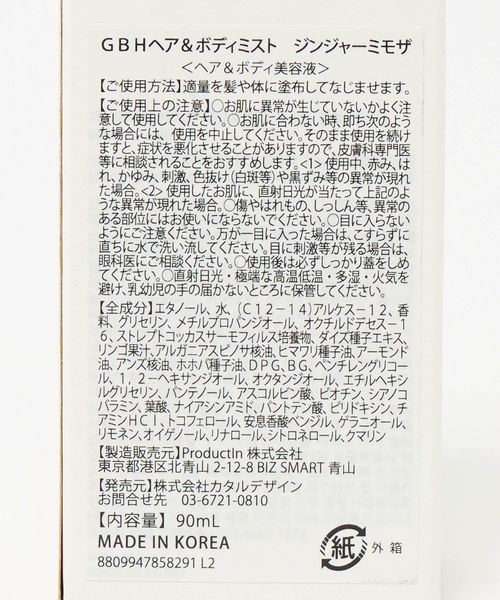 GBHヘア&ボディミスト ジンジャーミモザ
<ヘア&ボディ美容液>
【ご使用方法】適量を髪や体に塗布してなじませます。
【ご使用上の注意】○お肌に異常が生じていないかよく注
意して使用してください。○お肌に合わない時、即ち次のよう
な場合には、使用を中止してください。そのまま使用を続け
ますと、症状を悪化させることがありますので、皮膚科専門医
等に相談されることをおすすめします。<1> 使用中、赤み、は
れ、かゆみ、刺激、色抜け(白斑等)や黒ずみ等の異常が現れ
た場合。<2> 使用したお肌に、直射日光が当たって上記のよ
うな異常が現れた場合。○傷やはれもの、しっしん等、異常の
ある部位にはお使いにならないでください。○目に入らない
ようにご注意ください。万が一目に入った場合は、こすらずに
直ちに水で洗い流してください。目に刺激等が残る場合は、
眼科医にご相談ください。○使用後は必ずしっかり蓋をしめ
てください。○直射日光・極端な高温低温・多湿・火気を
避け、乳幼児の手の届かないところに保管してください。
【全成分】エタノール、水、(C12-14)アルケス-12、香
料、グリセリン、メチルプロパンジオール、オクチルドデセス-1
6、ストレプトコッカスサーモフィルス培養物、ダイズ種子エキス、
リンゴ果汁、アルガニアスピノサ核油、ヒマワリ種子油、アーモンド
油、アンズ核油、ホホバ種子油、DPG、BG、ペンチレングリコー
ル、1,2-ヘキサンジオール、オクタンジオール、エチルヘキシ
ルグリセリン、パンテノール、アスコルビン酸、ビオチン、シアノコ
バラミン、葉酸、ナイアシンアミド、パントテン酸、ピリドキシン、チ
アミンHCl、トコフェロール、安息香酸ベンジル、ゲラニオール、
リモネン、オイゲノール、リナロール、シトロネロール、クマリン
【製造販売元】ProductIn 株式会社
東京都港区北青山 2-12-8 BIZ SMART 青山
【発売元】株式会社カタルデザイン
お問合せ先 03-6721-0810
【内容量】 90mL
MADE IN KOREA
8809947858291 L2
紙 外箱